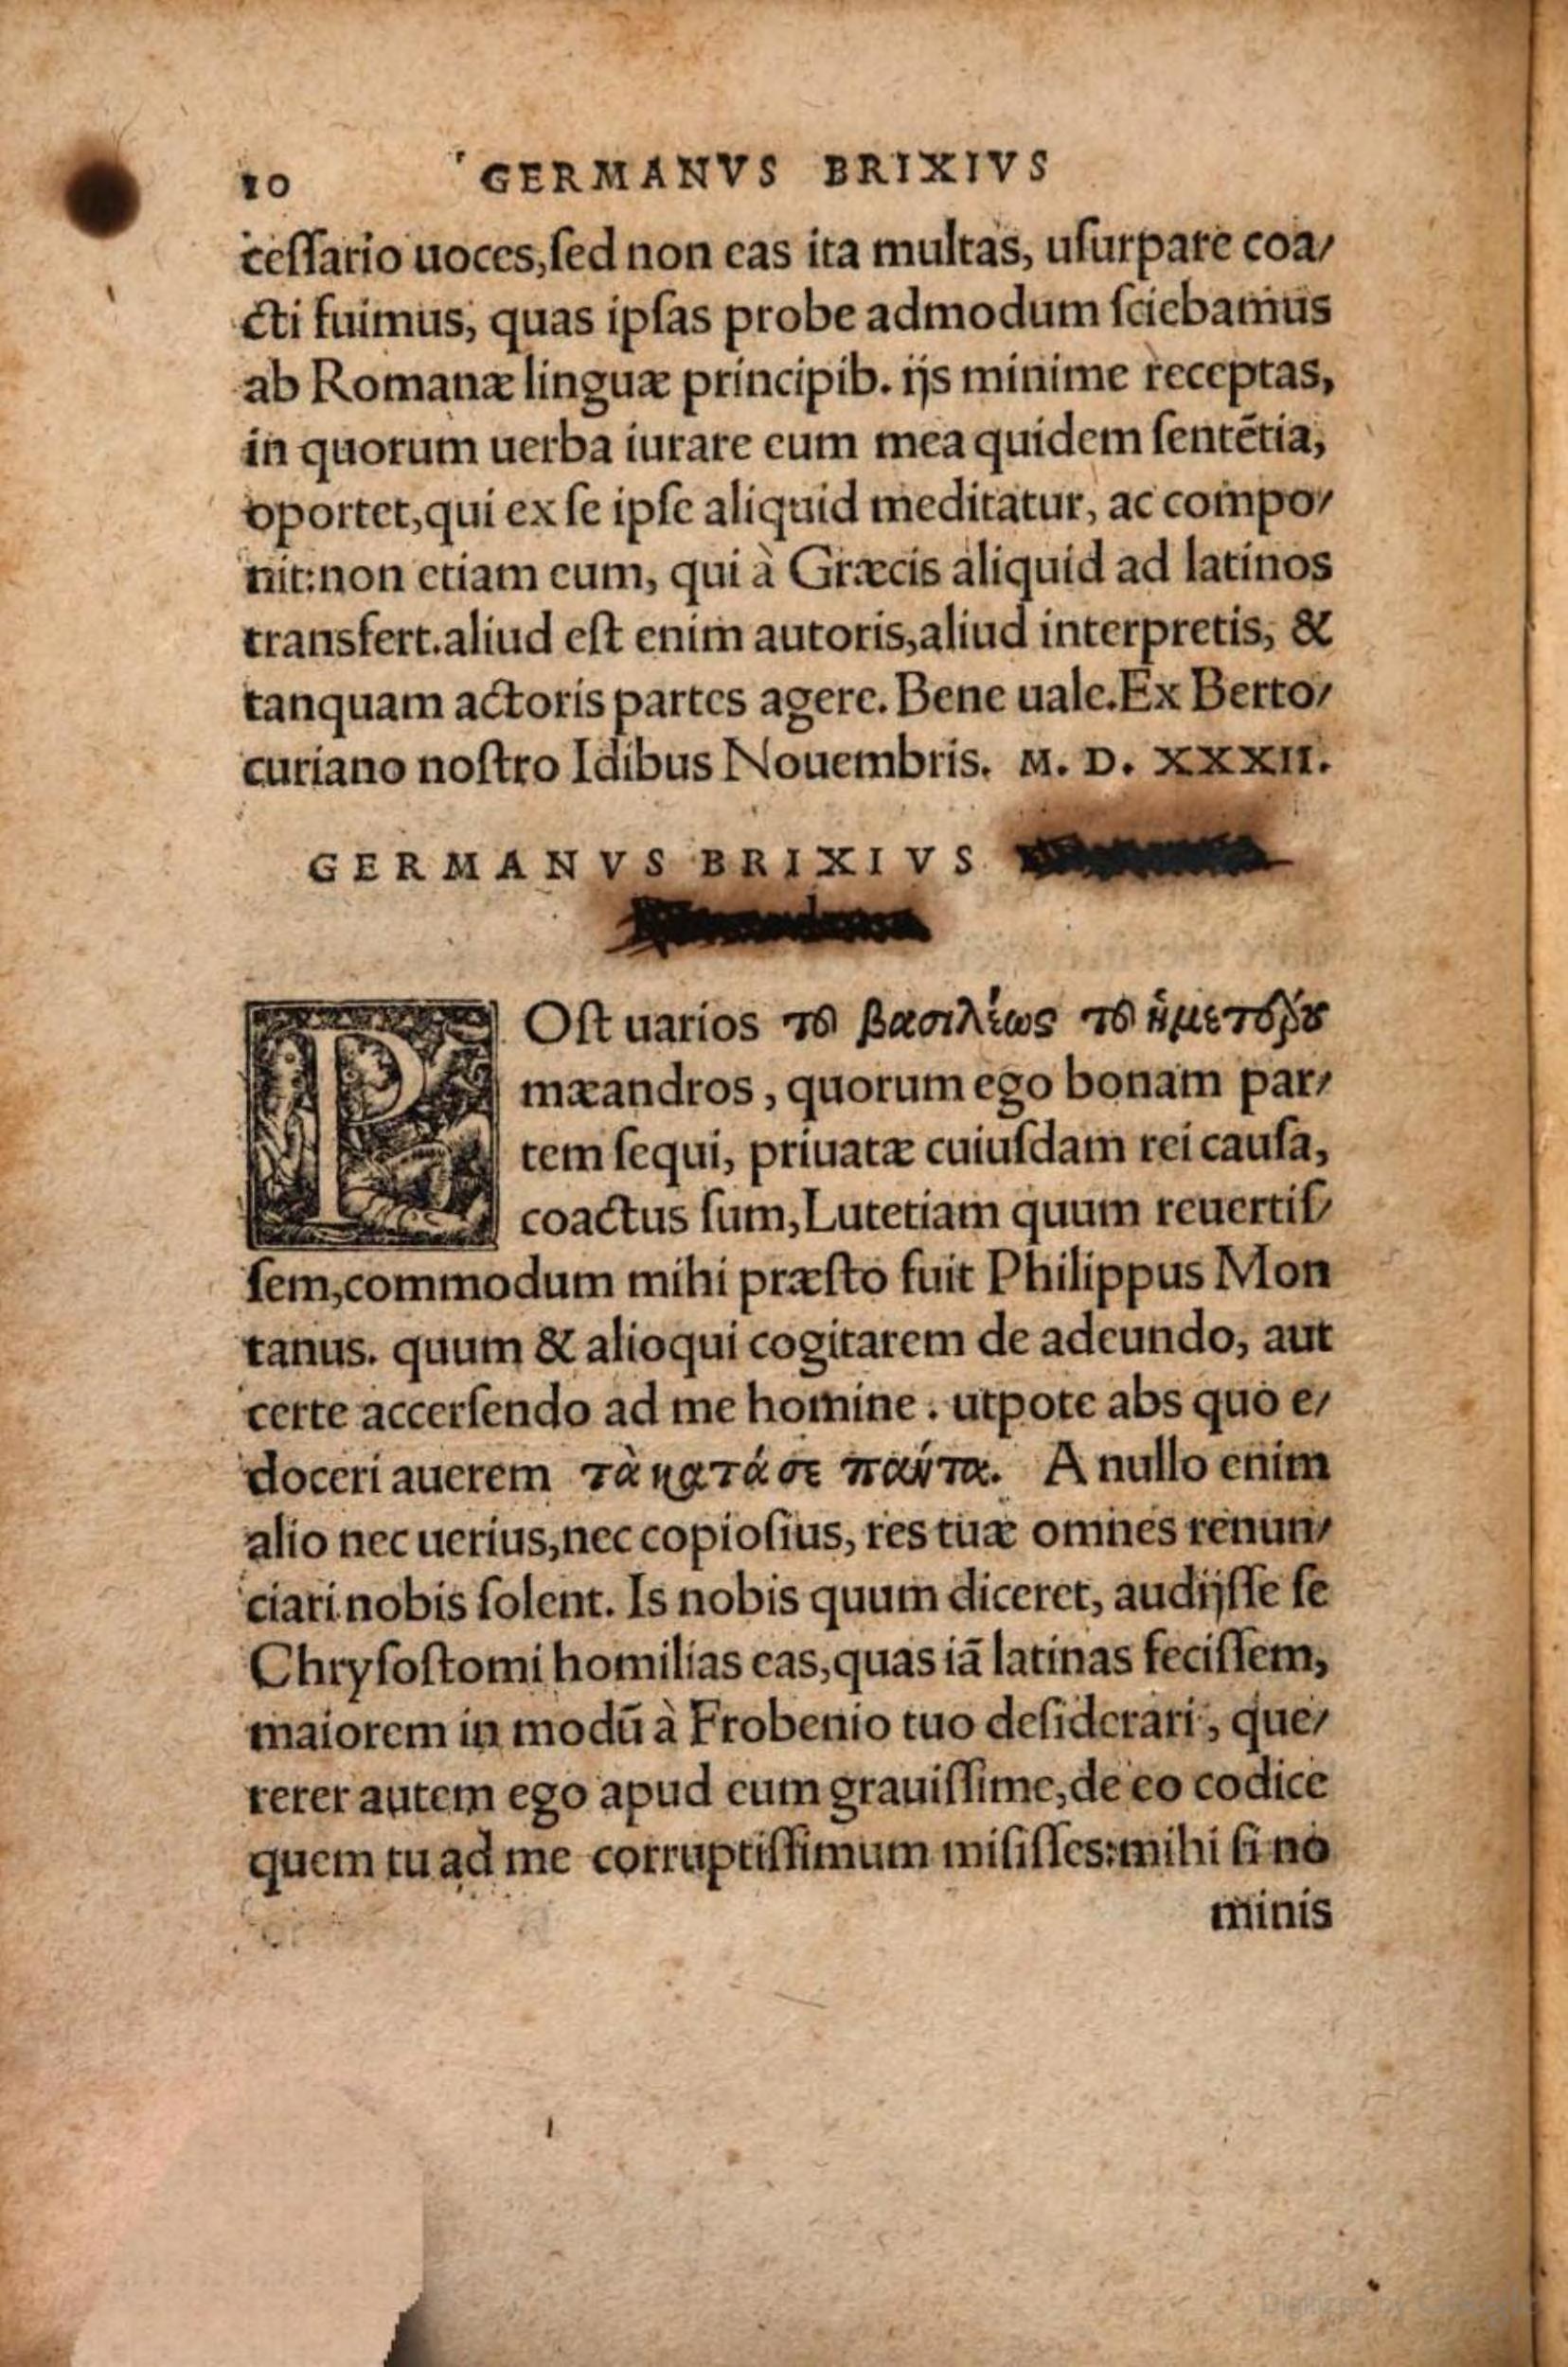 10 GERMANVS BRIXIVS
ceſſario uoces,ſed non eas ita multas, uſurpare coa/
cti fuimus, quas ipſas probe admodum ſciebamus
ab Romanæ linguæ principib. ijs minime receptas,
in quorum uerba iurare eum mea quidem ſentētia,
oportet,qui ex ſe ipſe aliquid meditatur, ac compo/
nit:non etiam eum, qui à Græcis aliquid ad latinos
transfert.aliud eſt enim autoris,aliud interpretis, &
tanquam actoris partes agere. Bene uale.Ex Berto/
curiano noſtro Idibus Nouembris. M. D. XXXII.
GERMANVS BRIXIVS
POſt uarios τοῦ βασιλέως τοῦ ἡμετέρου
mæandros, quorum ego bonam par/
tem ſequi, priuatæ cuiuſdam rei cauſa,
coactus ſum,Lutetiam quum reuertiſ/
ſem,commodum mihi præſto fuit Philippus Mon
tanus. quum & alioqui cogitarem de adeundo, aut
certe accerſendo ad me homine. utpote abs quo e/
doceri auerem τὰ κατά σε πάντα. A nullo enim
alio nec uerius,nec copioſius, res tuæ omnes renun/
ciari nobis ſolent. Is nobis quum diceret, audijſſe ſe
Chryſoſtomi homilias eas,quas iā latinas feciſſem,
maiorem in modū à Frobenio tuo deſiderari, que/
rerer autem ego apud eum grauiſſime,de eo codice
quem tu ad me corruptiſſimum miſiſſes:mihi ſi no
minis